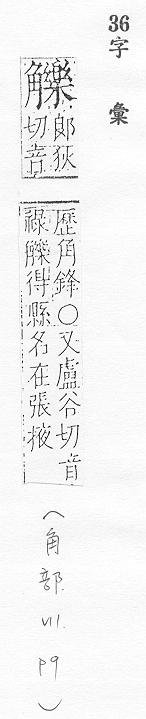 36
字彙
觻郎狄
切音
歷角鋒○又盧谷切音
祿觻得縣名在張掖
(角部. VII. P9)